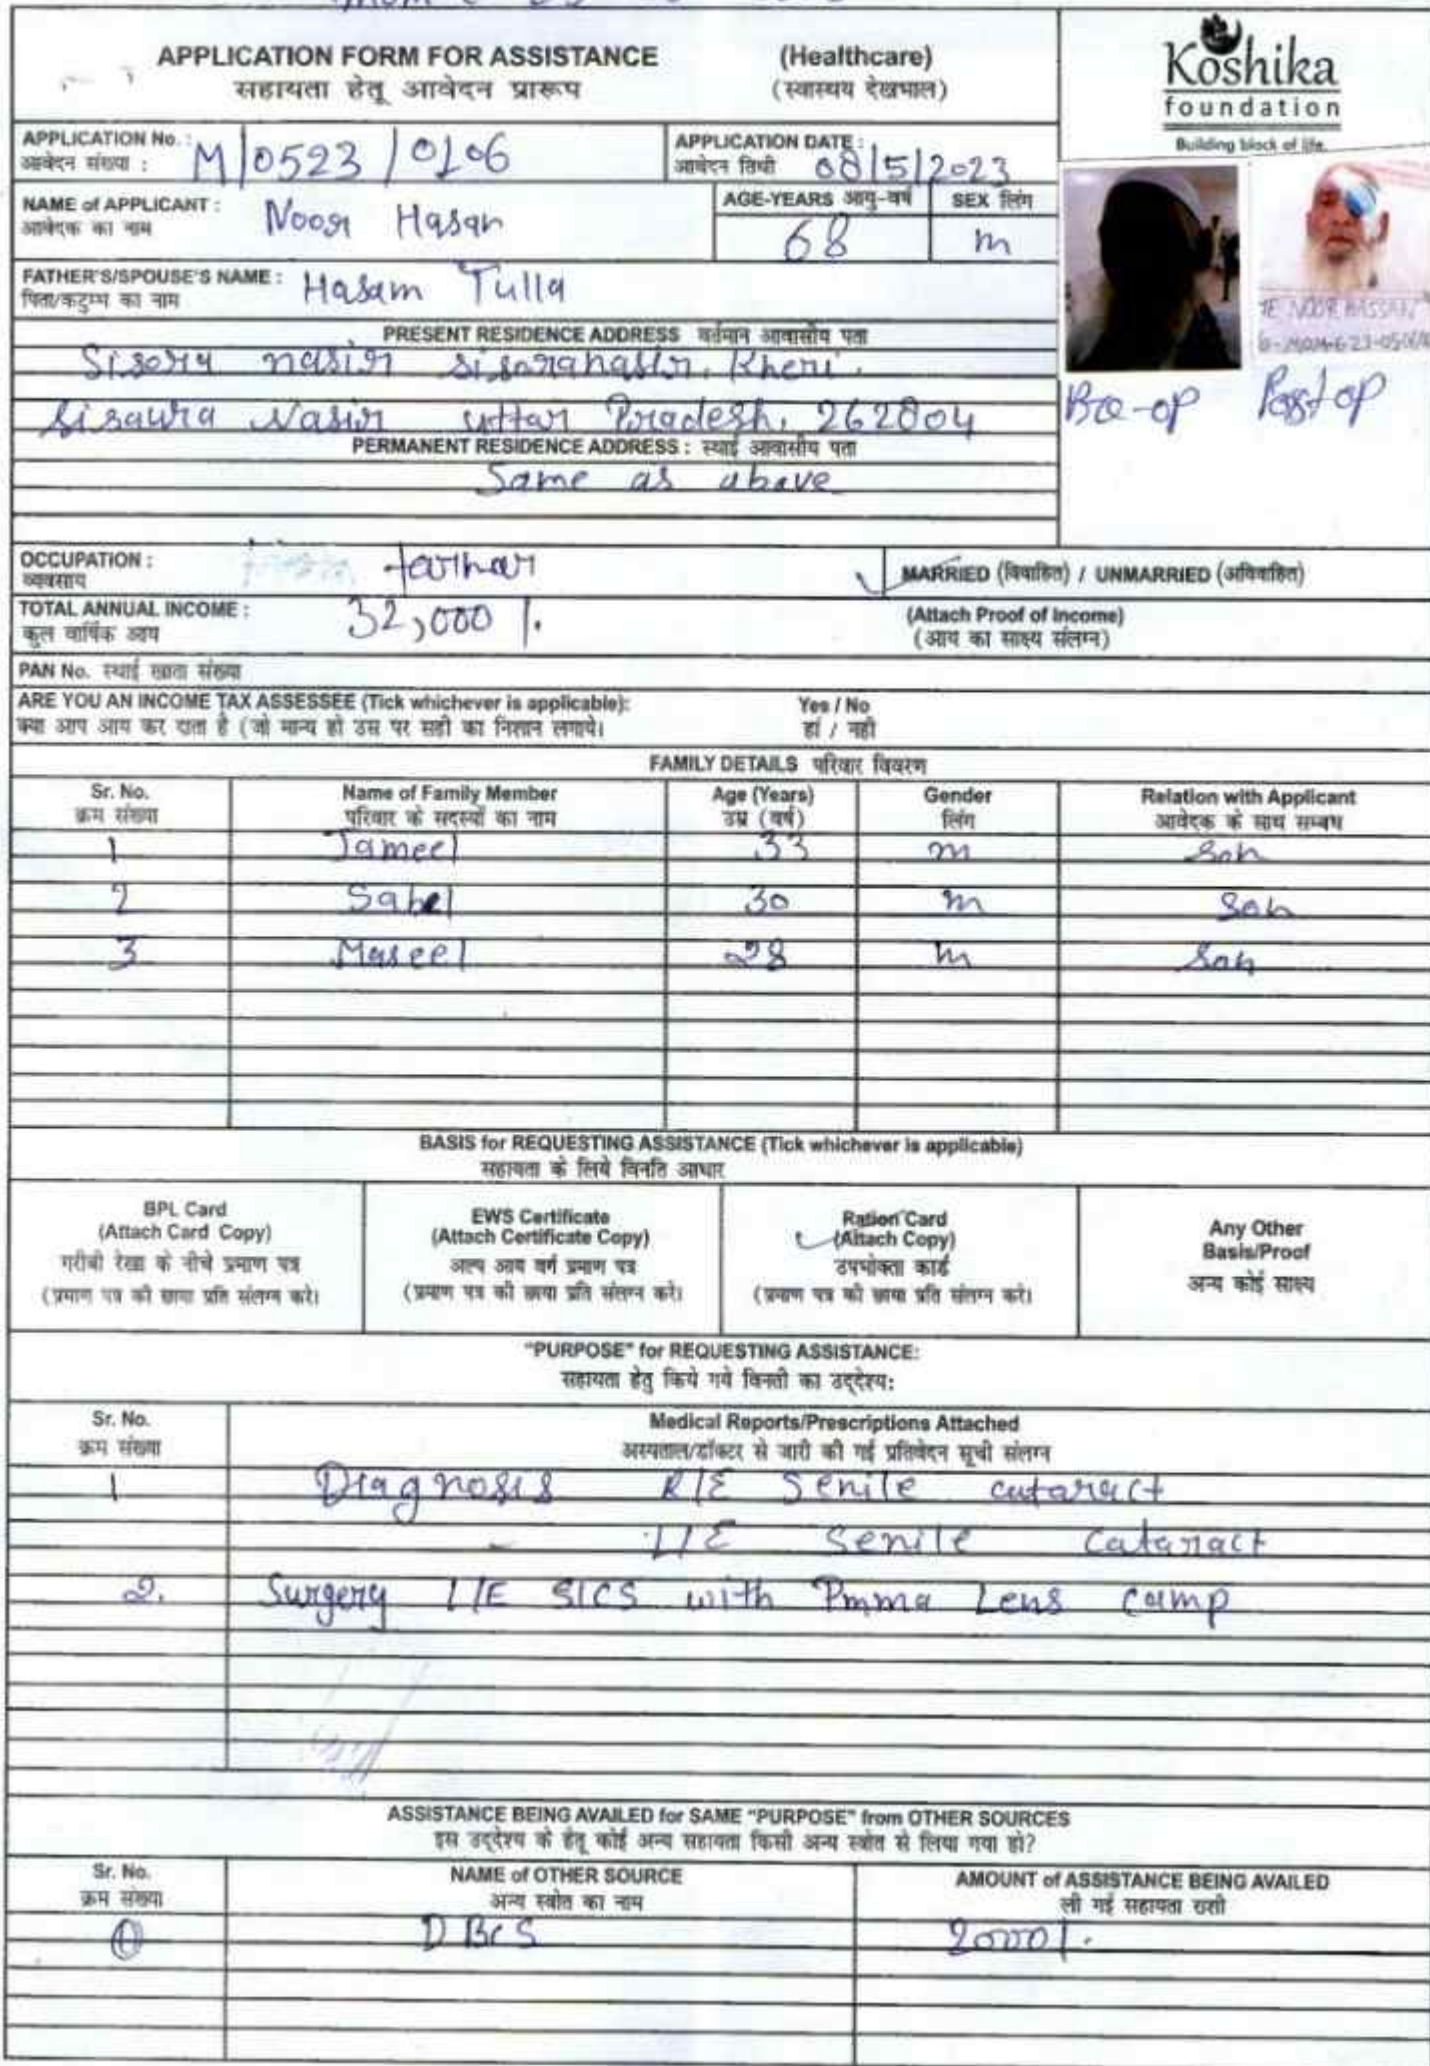 APPLICATION FORM FOR ASSISTANCE
(Healthcare)
सहायता हेतू आवेदन प्रारूप
(स्वास्थय देखभाल)
Koshika
foundation
Building block of life.
APPLICATION No. :
आवेदन संख्या :
M/0523/0106
APPLICATION DATE :
आवेदन तिथी
08/5/2023
NAME of APPLICANT :
आवेदक का नाम
Noor Hasan
AGE-YEARS आयु-वर्ष
68
SEX लिंग
m
FATHER'S/SPOUSE'S NAME :
पिता/कटुम्ब का नाम
Hasam Tulla
PRESENT RESIDENCE ADDRESS वर्तमान आवासीय पता
Sisora nasir Kheri.
Sisaura Nasir uttar Pradesh, 262804
PERMANENT RESIDENCE ADDRESS : स्थाई आवासीय पता
Same as above
NOOR HASSAN
Pre-op Post op
OCCUPATION :
व्यवसाय
farmar
MARRIED (विवाहित) / UNMARRIED (अविवाहित)
TOTAL ANNUAL INCOME :
कुल वार्षिक आय
32,000/.
(Attach Proof of Income)
(आय का साक्ष्य संलग्न)
PAN No. स्थाई खाता संख्या
ARE YOU AN INCOME TAX ASSESSEE (Tick whichever is applicable):
Yes / No
क्या आप आय कर दाता है (जो मान्य हो उस पर सही का निशान लगाये।
हां / नही
FAMILY DETAILS परिवार विवरण
Sr. No. Name of Family Member Age (Years) Gender Relation with Applicant
क्रम संख्या परिवार के सदस्यों का नाम उम्र (वर्ष) लिंग आवेदक के साथ सम्बध
1 Jameel 33 m Son
2 Sabel 30 m Son
3 Maseel 28 m Son
BASIS for REQUESTING ASSISTANCE (Tick whichever is applicable)
सहायता के लिये विनति आधार
BPL Card
(Attach Card Copy)
गरीबी रेखा के नीचे प्रमाण पत्र
(प्रमाण पत्र की छाया प्रति संलग्न करे।
EWS Certificate
(Attach Certificate Copy)
अल्प आय वर्ग प्रमाण पत्र
(प्रमाण पत्र की छाया प्रति संलग्न करे।
Ration Card
(Attach Copy)
उपभोक्ता कार्ड
(प्रमाण पत्र की छाया प्रति संलग्न करे।
Any Other
Basis/Proof
अन्य कोई साक्ष्य
"PURPOSE" for REQUESTING ASSISTANCE:
सहायता हेतु किये गये विनती का उद्देश्य:
Sr. No. Medical Reports/Prescriptions Attached
क्रम संख्या अस्पताल/डॉक्टर से जारी की गई प्रतिवेदन सूची संलग्न
1 Diagnosis R/E Senile cataract
L/E Senile Cataract
2. Surgery L/E SICS with Pmma Lens camp
ASSISTANCE BEING AVAILED for SAME "PURPOSE" from OTHER SOURCES
इस उद्देश्य के हेतू कोई अन्य सहायता किसी अन्य स्त्रोत से लिया गया हो?
Sr. No. NAME of OTHER SOURCE AMOUNT of ASSISTANCE BEING AVAILED
क्रम संख्या अन्य स्त्रोत का नाम ली गई सहायता राशी
1 DBCS 2000/.